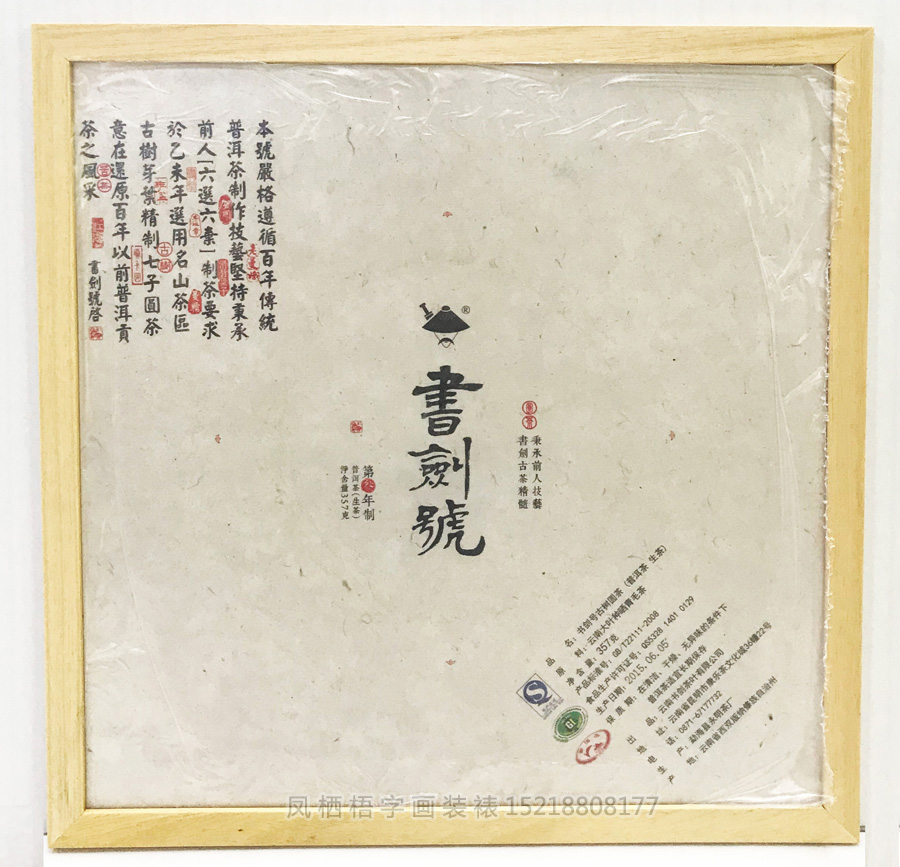 本號嚴格遵循百年傳統
普洱茶制作技藝堅持秉承
前人「六選六棄」制茶要求
於乙未年選用名山茶區
古樹芽葉精制七子圓茶
意在還原百年以前普洱貢
茶之風采
書劍號啓
®
書劍號
秉承前人技藝
書劍古茶精髓
第叁年制
普洱茶(生茶)
淨含量357克
品名：书剑号古树圆茶(普洱茶 生茶)
原料：云南大叶种晒青毛茶
净含量：357克
产品标准号：GB/T22111-2008
食品生产许可证号：QS5328 1401 0129
生产日期：2015.06.05
保质期：在清洁、干燥、无异味的条件下
普洱茶适宜长期保存
出品：云南书剑茶叶有限公司
地址：云南省昆明市康乐茶文化城36幢22号
电话：0871-67177732
生产：勐海县永明茶厂
产地：云南省西双版纳傣族自治州
凤栖梧字画装裱15218808177